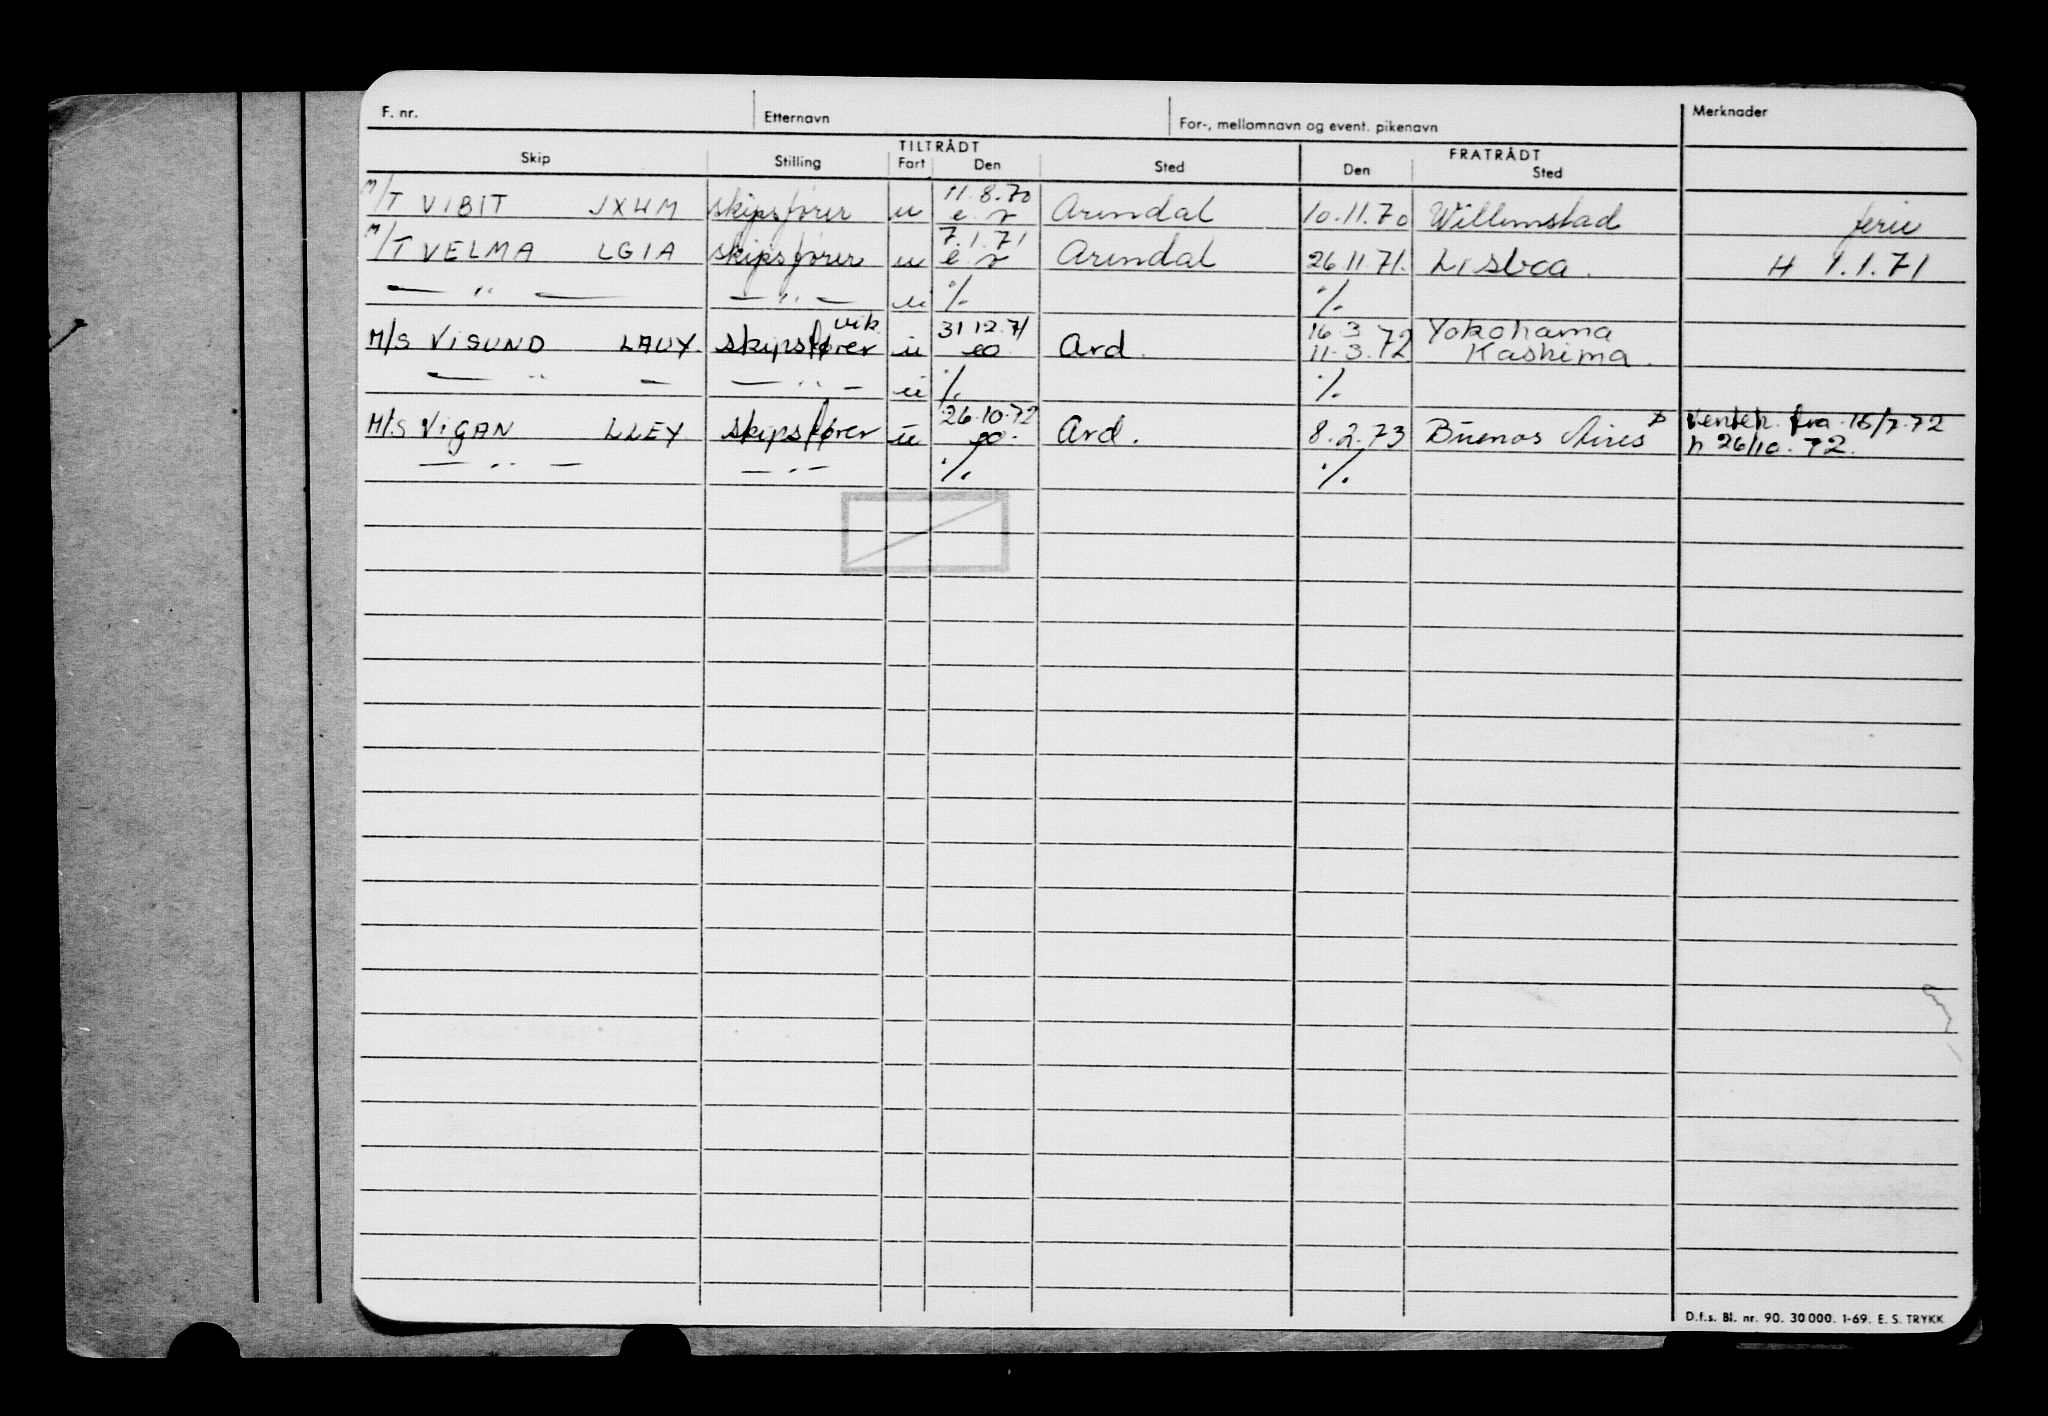 F. nr. Etternavn For-, mellomnavn og event. pikenavn Merknader
TILTRÅDT FRATRÅDT
Skip Stilling Fart Den Sted Den Sted
11.8.70
M/T VIBIT JXHM skipsfører u e.r Arendal 10.11.70 Willemstad ferie
7.1.71
M/T VELMA LGIA skipsfører u e r Arendal 26.11.71. Lisboa. H 1.1.71
— " — — " — u ·/. ·/.
vik 31 12.71 16.3 Yokohama
M/S VISUND LAUY. skipsfører u eo. Ard. 11.3.72 Kashima.
— " — — " — u ·/. ·/.
26.10.72 Venteh. fra 15/7.72
M/S VIGAN LLEY skipsfører u eo. Ard. 8.2.73 Buenos Aires h 26/10.72.
— " — — " — ·/. ·/.
D.f.s. Bl. nr. 90. 30 000. 1-69. E. S. TRYKK